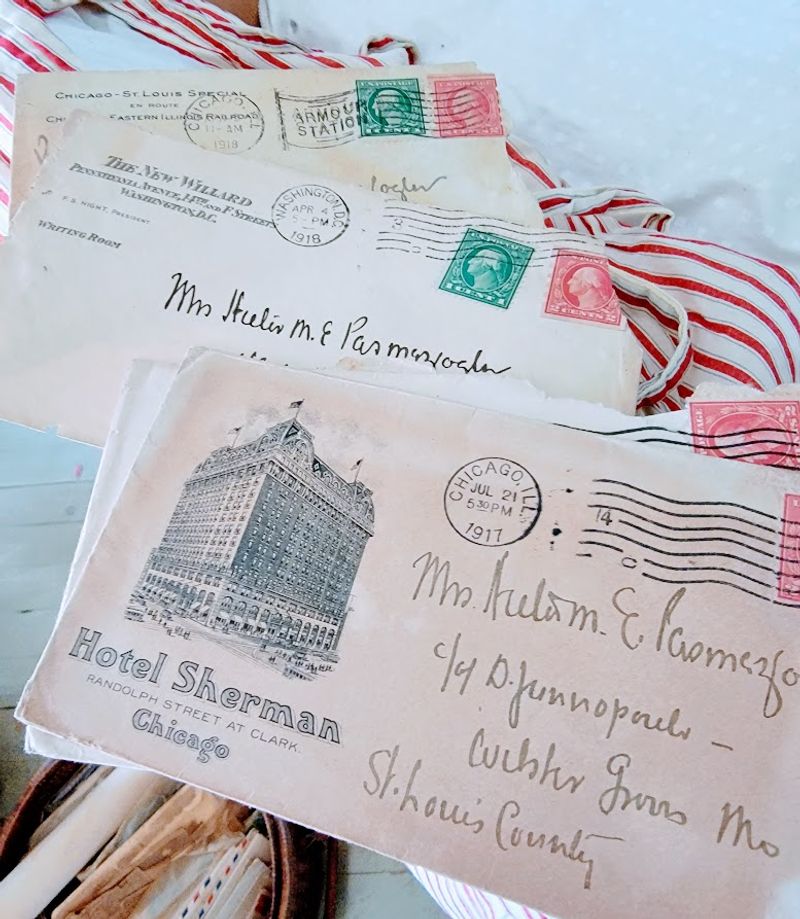 CHICAGO-ST. LOUIS SPECIAL
EN ROUTE
EASTERN ILLINOIS RAILROAD
CHICAGO,
11-AM
1918
ARMOUR
STATION
U.S. POSTAGE
THE NEW WILLARD
PENNSYLVANIA AVENUE, 14TH AND F STREET
WASHINGTON, D.C.
F. S. HIGHT, PRESIDENT.
WRITING ROOM
WASHINGTON, D.C.
APR 4
5-PM
1918
1 CENT 1
2 CENTS 2
Mrs M. E Pasmezoglu
Hotel Sherman
RANDOLPH STREET AT CLARK.
Chicago
CHICAGO, ILL.
JUL 21
530PM
1917
14
Mrs. M. E Pasmezo
D. Jannopoulo -
Webster Groves Mo
St. Louis County